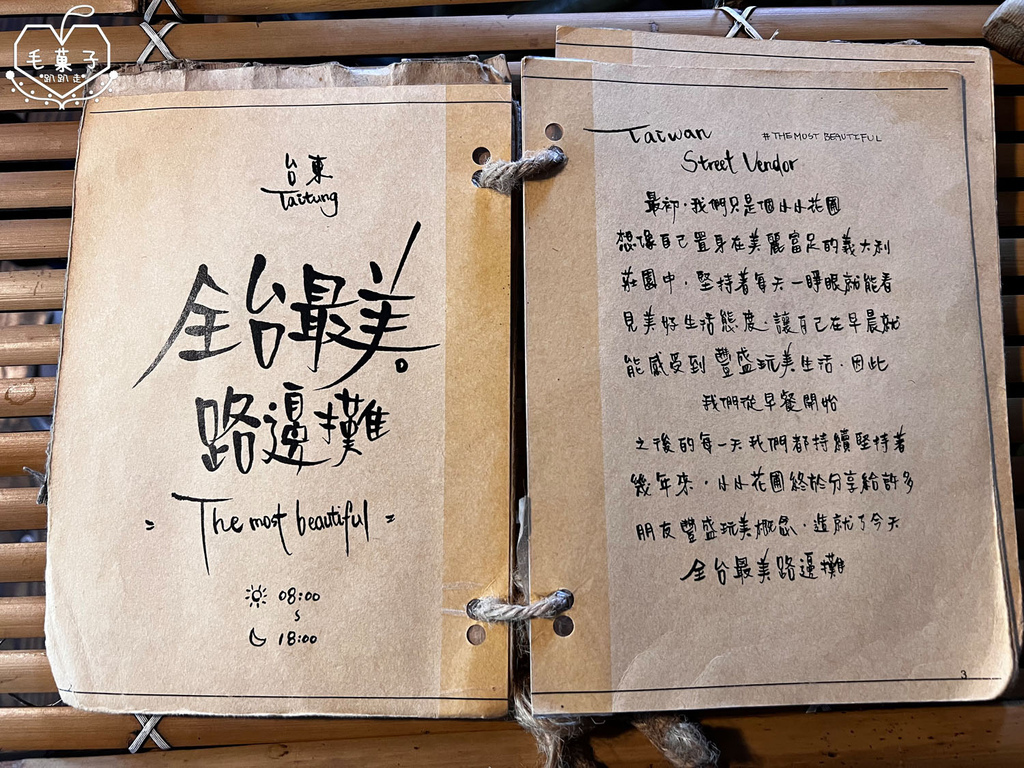 毛菓子
趴趴走
台東
Taitung
全台最美。
路邊攤
The most beautiful
08:00
~
18:00
Taiwan
#THE MOST BEAUTIFUL
Street Vendor
最初,我們只是個小小花園
想像自己置身在美麗富足的義大利
莊園中,堅持著每天一睜眼就能看
見美好生活態度,讓自己在早晨就
能感受到豐盛玩美生活,因此
我們從早餐開始
之後的每一天我們都持續堅持著
幾年來,小小花園終於分享給許多
朋友豐盛玩美概念,造就了今天
全台最美路邊攤
3